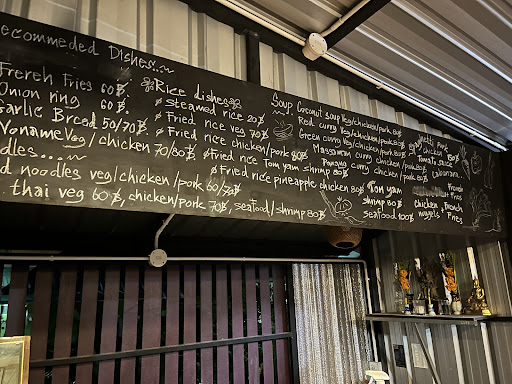 ecommeded Dishes...
French Fries 60฿.
Onion ring 60฿.
Garlic Bread 50/70฿.
Noname Veg / chicken 70/80฿.
dles....
d noodles veg/chicken/pork 60/70฿
thai veg 60฿, chicken/pork 70฿, seafood/shrimp 80฿
Rice dishes
steamed rice 20฿
Fried rice veg 70฿
Fried rice chicken/pork 80฿
Fried rice Tom yam shrimp 80฿
Fried rice pineapple chicken 80฿
Soup Coconut soup veg/chicken/pork 80฿
Red curry veg/chicken/pork 80฿
Green curry veg/chicken/pork 80฿
Massaman curry chicken/pork 80฿
Panang curry chicken/pork 80฿
Tom yam
shrimp 80฿
seafood 100฿
spaghetti pork
or chicken 80฿
Tomato sauce
carbonara
French
Fries
chicken + French
nuggets Fries